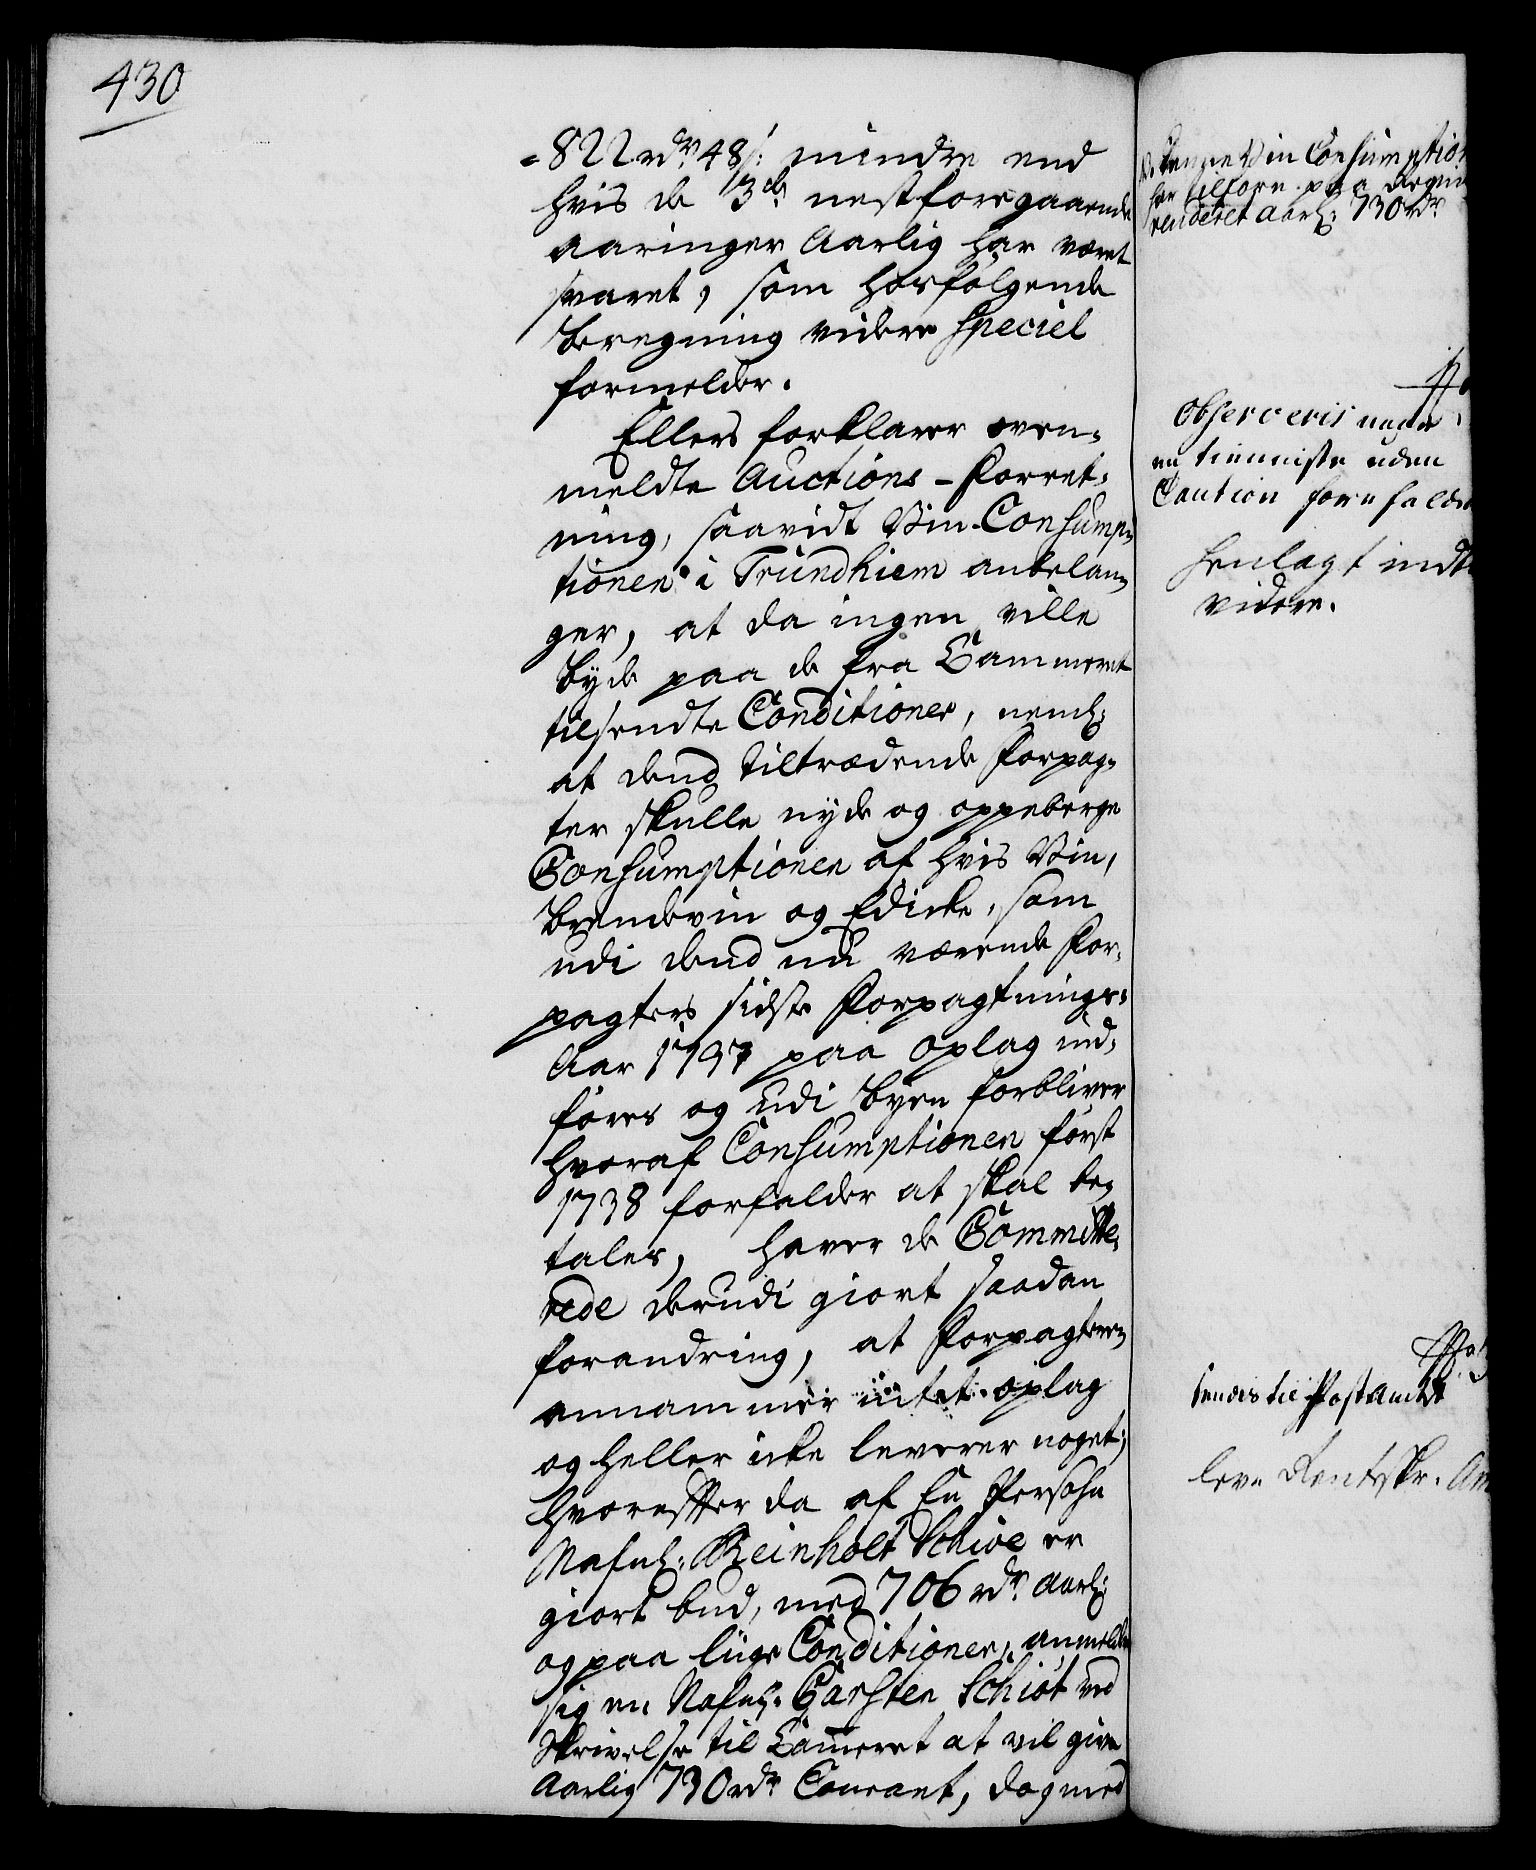 430
= 822 rdr 48 s: mindre end
hvis de 3de nestforegaaende
aaringer Aarlig har været
svaret, som hosfølgende
Beregning videre Speciel
formelder.
Ellers forklarer oven-
meldte Auctions-Forret-
ning, saavidt Vin-Consump-
tionen i Trundhiem anbelan-
ger, at da ingen ville
byde paa de fra Cammeret
tilsendte Conditioner, neml:
at dend tiltrædende Forpag-
ter skulle nyde og oppeberge
Consumptionen af hvis Vin,
Brendevin og Edicke, som
udi dend nu værende For-
pagters sidste Forpagtnings-
Aar 1737 paa Oplag ind-
føres og udi Byen forbliver
hvoraf Consumptionen først
1738 forfalder at skal be-
tales, haver de Committe-
rede derudi giort saadan
forandring, at Forpagteren
annammer intet oplag
og heller icke leverer noget;
hvorefter da af En Persohn
Nafnl: Reinholt Schive er
giort bud, med 706 rdr Aarl:
og paa liige Conditioner, anmelder
sig en Nafnl: Carsten Schiøt ved
Skrivelse til Cammeret at vil give
Aarlig 730 rdr Courant, dog med
Vin Consumption
har tilforn paa
Aarl: 730 rdr
Observeris
en uden
Caution
henlagt indt
videre.
sendes til Post Amtet
leve Rentskr.